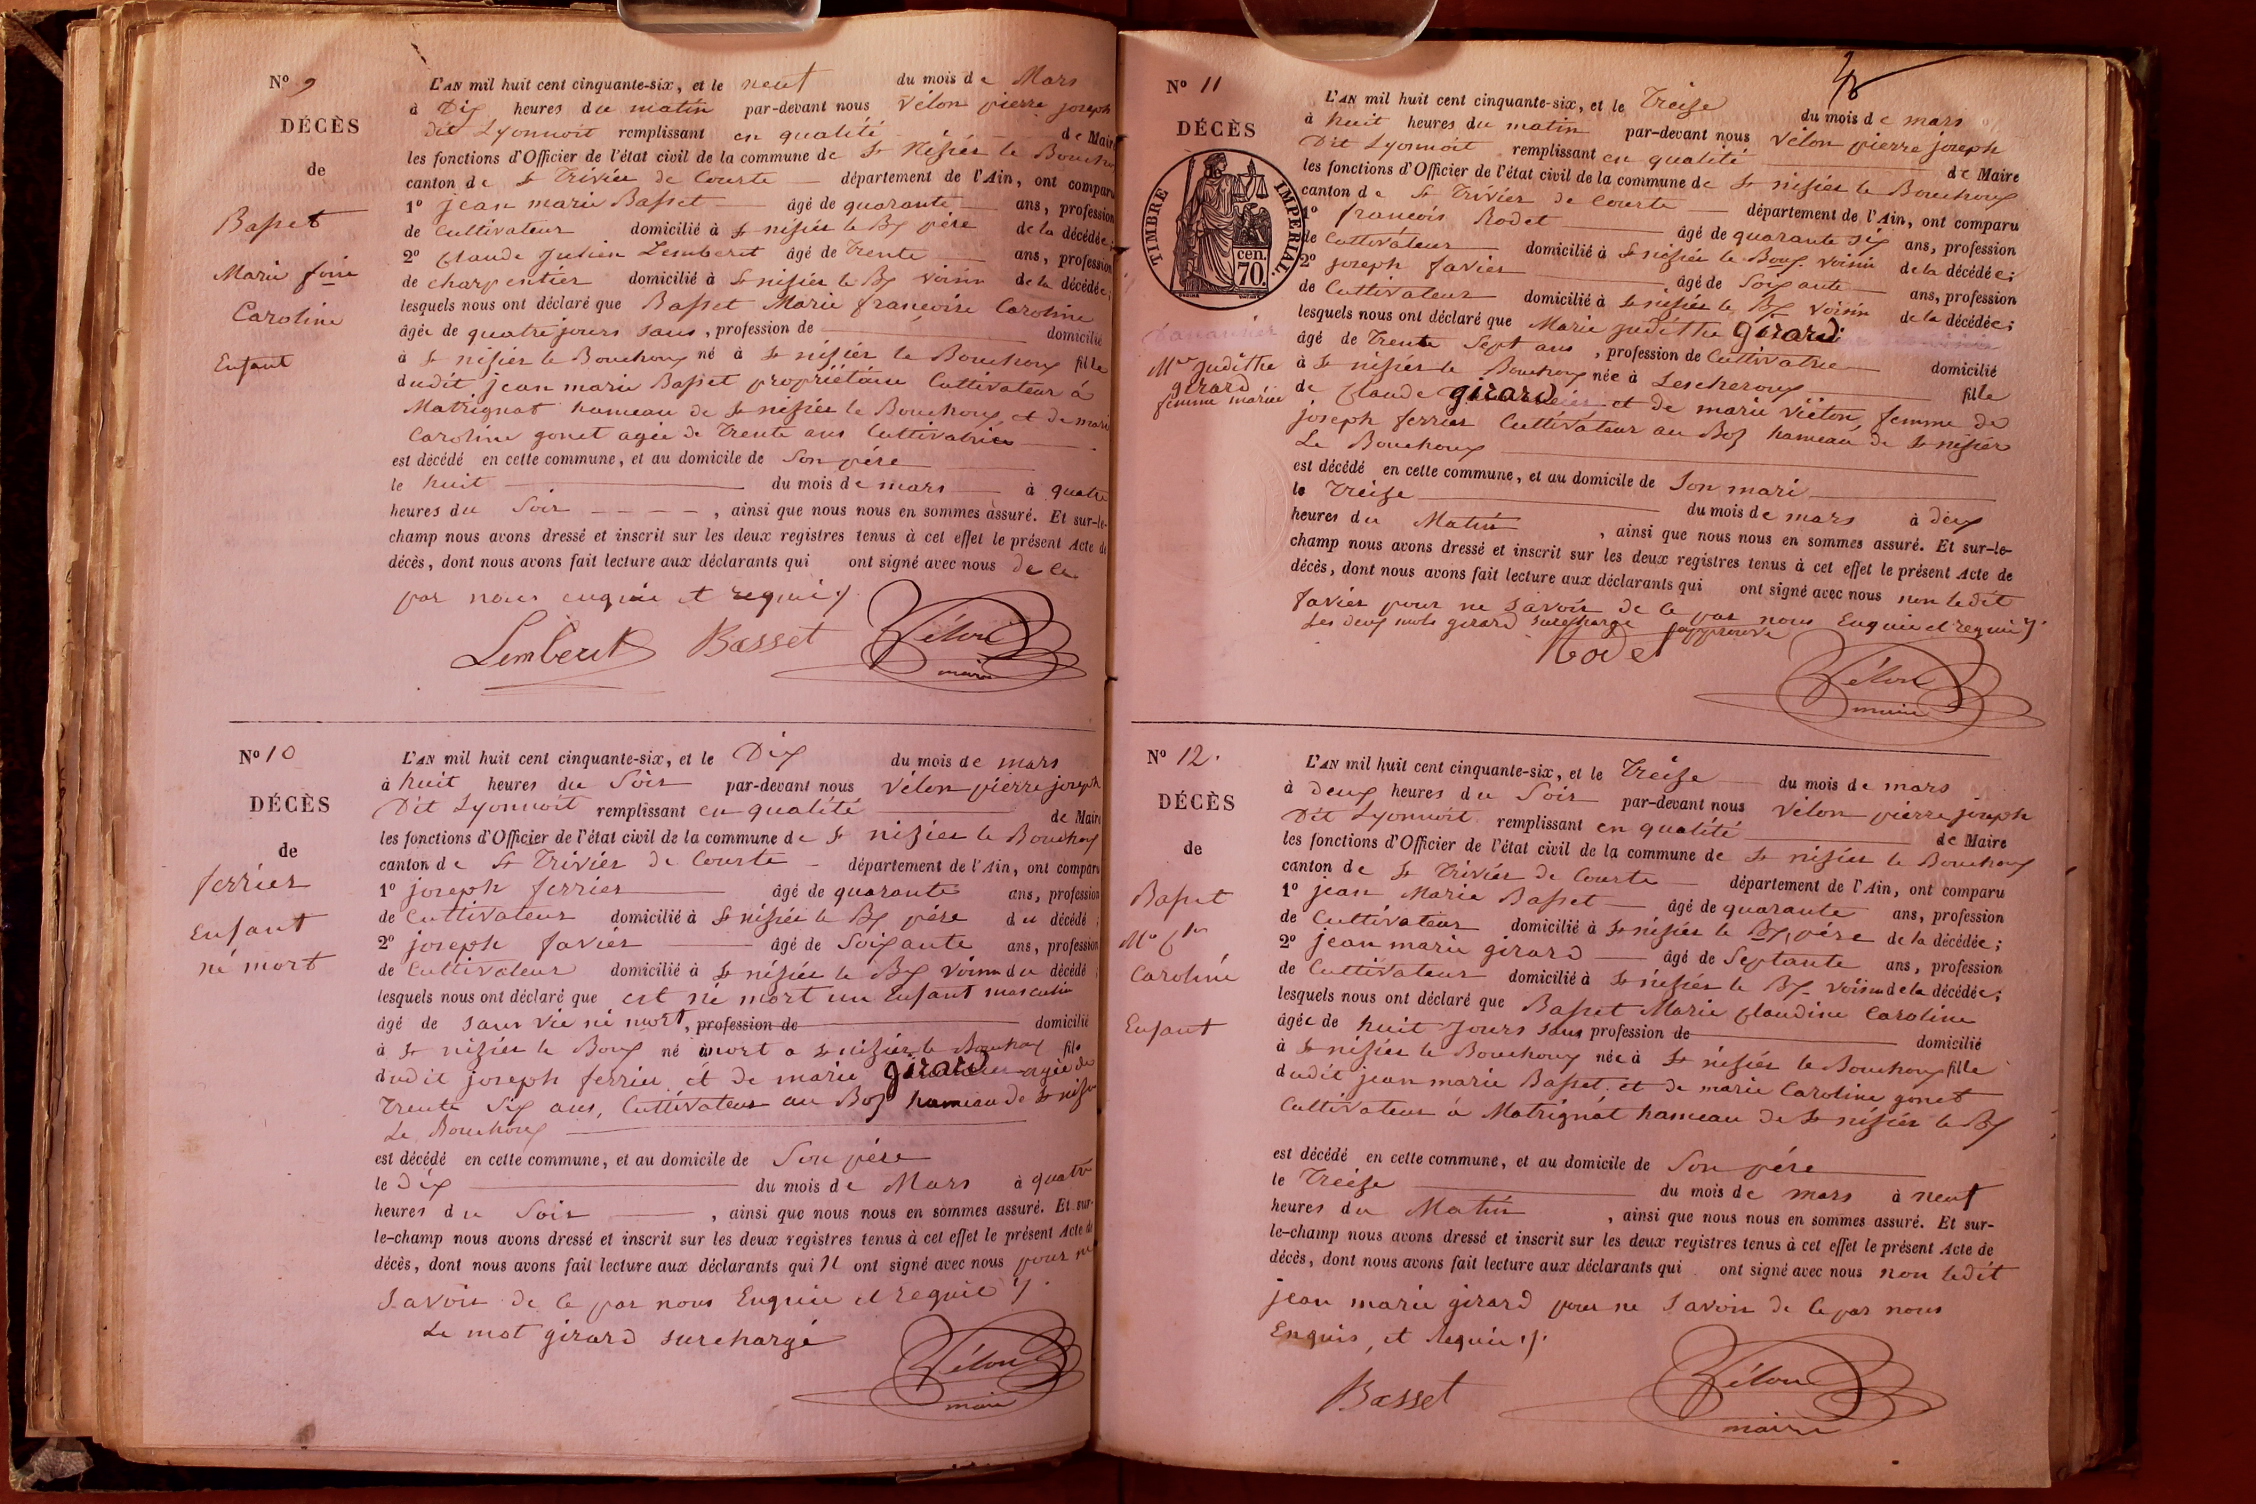 Nº 9
DÉCÈS
de
Basset
Marie foise
Caroline
Enfant
L'AN mil huit cent cinquante-six, et le neuf du mois de Mars
à Dix heures du matin par-devant nous Vélon pierre joseph
dit Lyonnoit remplissant en qualité de Maire
les fonctions d'Officier de l'état civil de la commune de St Nisier le Bouchoux
canton de St Trivier de Courte département de l'Ain, ont comparu
1º jean marie Basset âgé de quarante ans, profession
de Cultivateur domicilié à St nisier le Bx père de la décédée;
2º Claude Julien Lemberet âgé de Trente ans, profession
de charpentier domicilié à St nisier le Bx voisin de la décédée;
lesquels nous ont déclaré que Basset Marie francoise Caroline
âgée de quatre jours sans, profession de domicilié
à St nisier le Bouchoux né à St nisier le Bouchoux fille
dudit jean marie Basset propriétaire Cultivateur à
Matrignat hameau de St nisier le Bouchoux et de marie
Caroline gonet agée de Trente ans Cultivatrice
est décédé en cette commune, et au domicile de Son père
le huit du mois de mars à quatre
heures du Soir, ainsi que nous nous en sommes assuré. Et sur-le-
champ nous avons dressé et inscrit sur les deux registres tenus à cet effet le présent Acte de
décès, dont nous avons fait lecture aux déclarants qui ont signé avec nous de ce
par nous enquie et requie
Lemberet Basset Vélon
maire
Nº 10
DÉCÈS
de
ferrier
Enfant
né mort
L'AN mil huit cent cinquante-six, et le Dix du mois de mars
à huit heures du Soir par-devant nous Vélon pierre joseph
Dit Lyonnoit remplissant en qualité de Maire
les fonctions d'Officier de l'état civil de la commune de St nizier le Bouchoux
canton de St Trivier de Courte département de l'Ain, ont comparu
1º joseph ferrier âgé de quarante ans, profession
de Cultivateur domicilié à St nisier le Bx père du décédé;
2º joseph favier âgé de Soixante ans, profession
de Cultivateur domicilié à St nisier le Bx voisin du décédé;
lesquels nous ont déclaré que est né mort un Enfant masculin
âgé de sans vie né mort, profession de domicilié
à St nizier le Boux né mort a St nizier le Bouchoux fils
dudit joseph ferrier et de marie girard agée de
Trente Six ans, Cultivateur au Boz hameau de St nisier
Le Bouchoux
est décédé en cette commune, et au domicile de Son père
le dix du mois de Mars à quatre
heures du Soir, ainsi que nous nous en sommes assuré. Et sur-
le-champ nous avons dressé et inscrit sur les deux registres tenus à cet effet le présent Acte de
décès, dont nous avons fait lecture aux déclarants qui N ont signé avec nous pour ne
Savoir de ce par nous Enquie et requie
Le mot girard surchargé
Vélon
maire
Nº 11
DÉCÈS
TIMBRE IMPERIAL.
cen.
70.
Mie Judithe
girard
femme mariée
L'AN mil huit cent cinquante-six, et le Treize du mois de mars
à huit heures du matin par-devant nous Vélon pierre joseph
Dit Lyonnoit remplissant en qualité de Maire
les fonctions d'Officier de l'état civil de la commune de St nisier le Bouchoux
canton de St Trivier de Courte département de l'Ain, ont comparu
1º francois Rodet âgé de quarante six ans, profession
de Cultivateur domicilié à St nisier le Boux voisin de la décédée;
2º joseph favier âgé de Soixante ans, profession
de Cultivateur domicilié à St nisier le Bx voisin de la décédée;
lesquels nous ont déclaré que Marie judithe girard
âgé de Trente Sept ans, profession de Cultivatrice domicilié
à St nisier le Bouchoux née à Lescheroux fille
de Claude girard et de marie Viéton, femme de
joseph ferrier Cultivateur au Boz hameau de St nisier
Le Bouchoux
est décédé en cette commune, et au domicile de Son mari
le Treize du mois de mars à deux
heures du Matin, ainsi que nous nous en sommes assuré. Et sur-le-
champ nous avons dressé et inscrit sur les deux registres tenus à cet effet le présent Acte de
décès, dont nous avons fait lecture aux déclarants qui ont signé avec nous non ledit
favier pour ne savoir de ce par nous Enquie et requie
Les deux mots girard surchargé approuvé
Rodet
Vélon
maire
Nº 12.
DÉCÈS
de
Basset
Mie Cine
Caroline
Enfant
L'AN mil huit cent cinquante-six, et le Treize du mois de mars
à deux heures du Soir par-devant nous Vélon pierre joseph
Dit Lyonnoit remplissant en qualité de Maire
les fonctions d'Officier de l'état civil de la commune de St nisier le Bouchoux
canton de St Trivier de Courte département de l'Ain, ont comparu
1º jean Marie Basset âgé de quarante ans, profession
de Cultivateur domicilié à St nisier le Bx, père de la décédée;
2º jean marie girard âgé de Septante ans, profession
de Cultivateur domicilié à St nisier le Bx voisin de la décédée;
lesquels nous ont déclaré que Basset Marie Claudine Caroline
âgée de huit Jours sans profession de domicilié
à St nisier le Bouchoux née à St nisier le Bouchoux fille
dudit jean marie Basset et de marie Caroline gonet
Cultivateur à Matrignat hameau de St nisier le Bx
est décédé en cette commune, et au domicile de Son père
le Treize du mois de mars à neuf
heures du Matin, ainsi que nous nous en sommes assuré. Et sur-
le-champ nous avons dressé et inscrit sur les deux registres tenus à cet effet le présent Acte de
décès, dont nous avons fait lecture aux déclarants qui ont signé avec nous non ledit
jean marie girard pour ne Savoir de ce par nous
Enquis, et Requie
Basset Vélon
maire